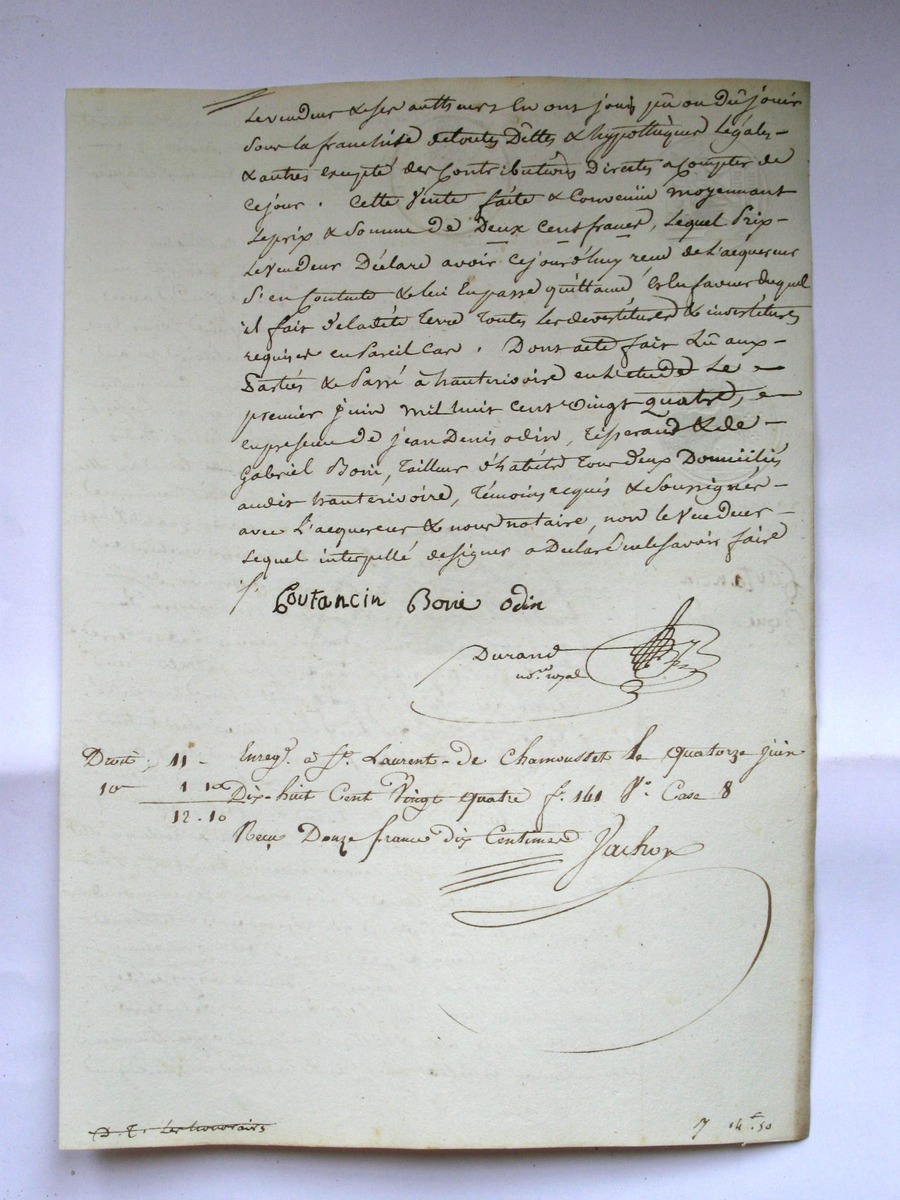 le vendeur & ses autheurs En ont joui pû ou dû jouir
Sous la franchise detoutes Dêttes & hypothèques Légales -
& autres excepté des Contributions Directes a Compter de
cejour . Cette Vente faite & Convenüe moyennant
Leprix & Somme de Deux cent francs, Lequel Prix -
Levendeur Déclare avoir cejourd'huy reçu de L'acquereur
S'en Contente & lui En passe quittance & En faveur duquel
il fait deladite terre toutes les devestitures & investitures
requises en Pareil Cas . Dont acte fait Lû aux -
Parties & Passé à hauterivoire en L'etude Le -
premier juin mil huit cent vingt quatre, -
en presence de jean Denis odin, Tisserand & de -
Gabriel Borie, Tailleur d'habits tous deux Domiciliés
audit hauterivoire, Témoins requis & Soussignés -
avec L'acquereur & nous notaire, non le Vendeur -
Lequel interpellé designer a Déclaré nele savoir faire
Coutancin Borie odin
Durand
no.re royal
Droit 11 - Enreg. à St. Laurent - de Chamousset le quatorze juin
10e 1 10 Dix-huit Cent Vingt quatre f. 141 Vo. Case 8
12 . 10
Reçu Douze francs dix Centimes Vachon
D. T. Les
14 f 50